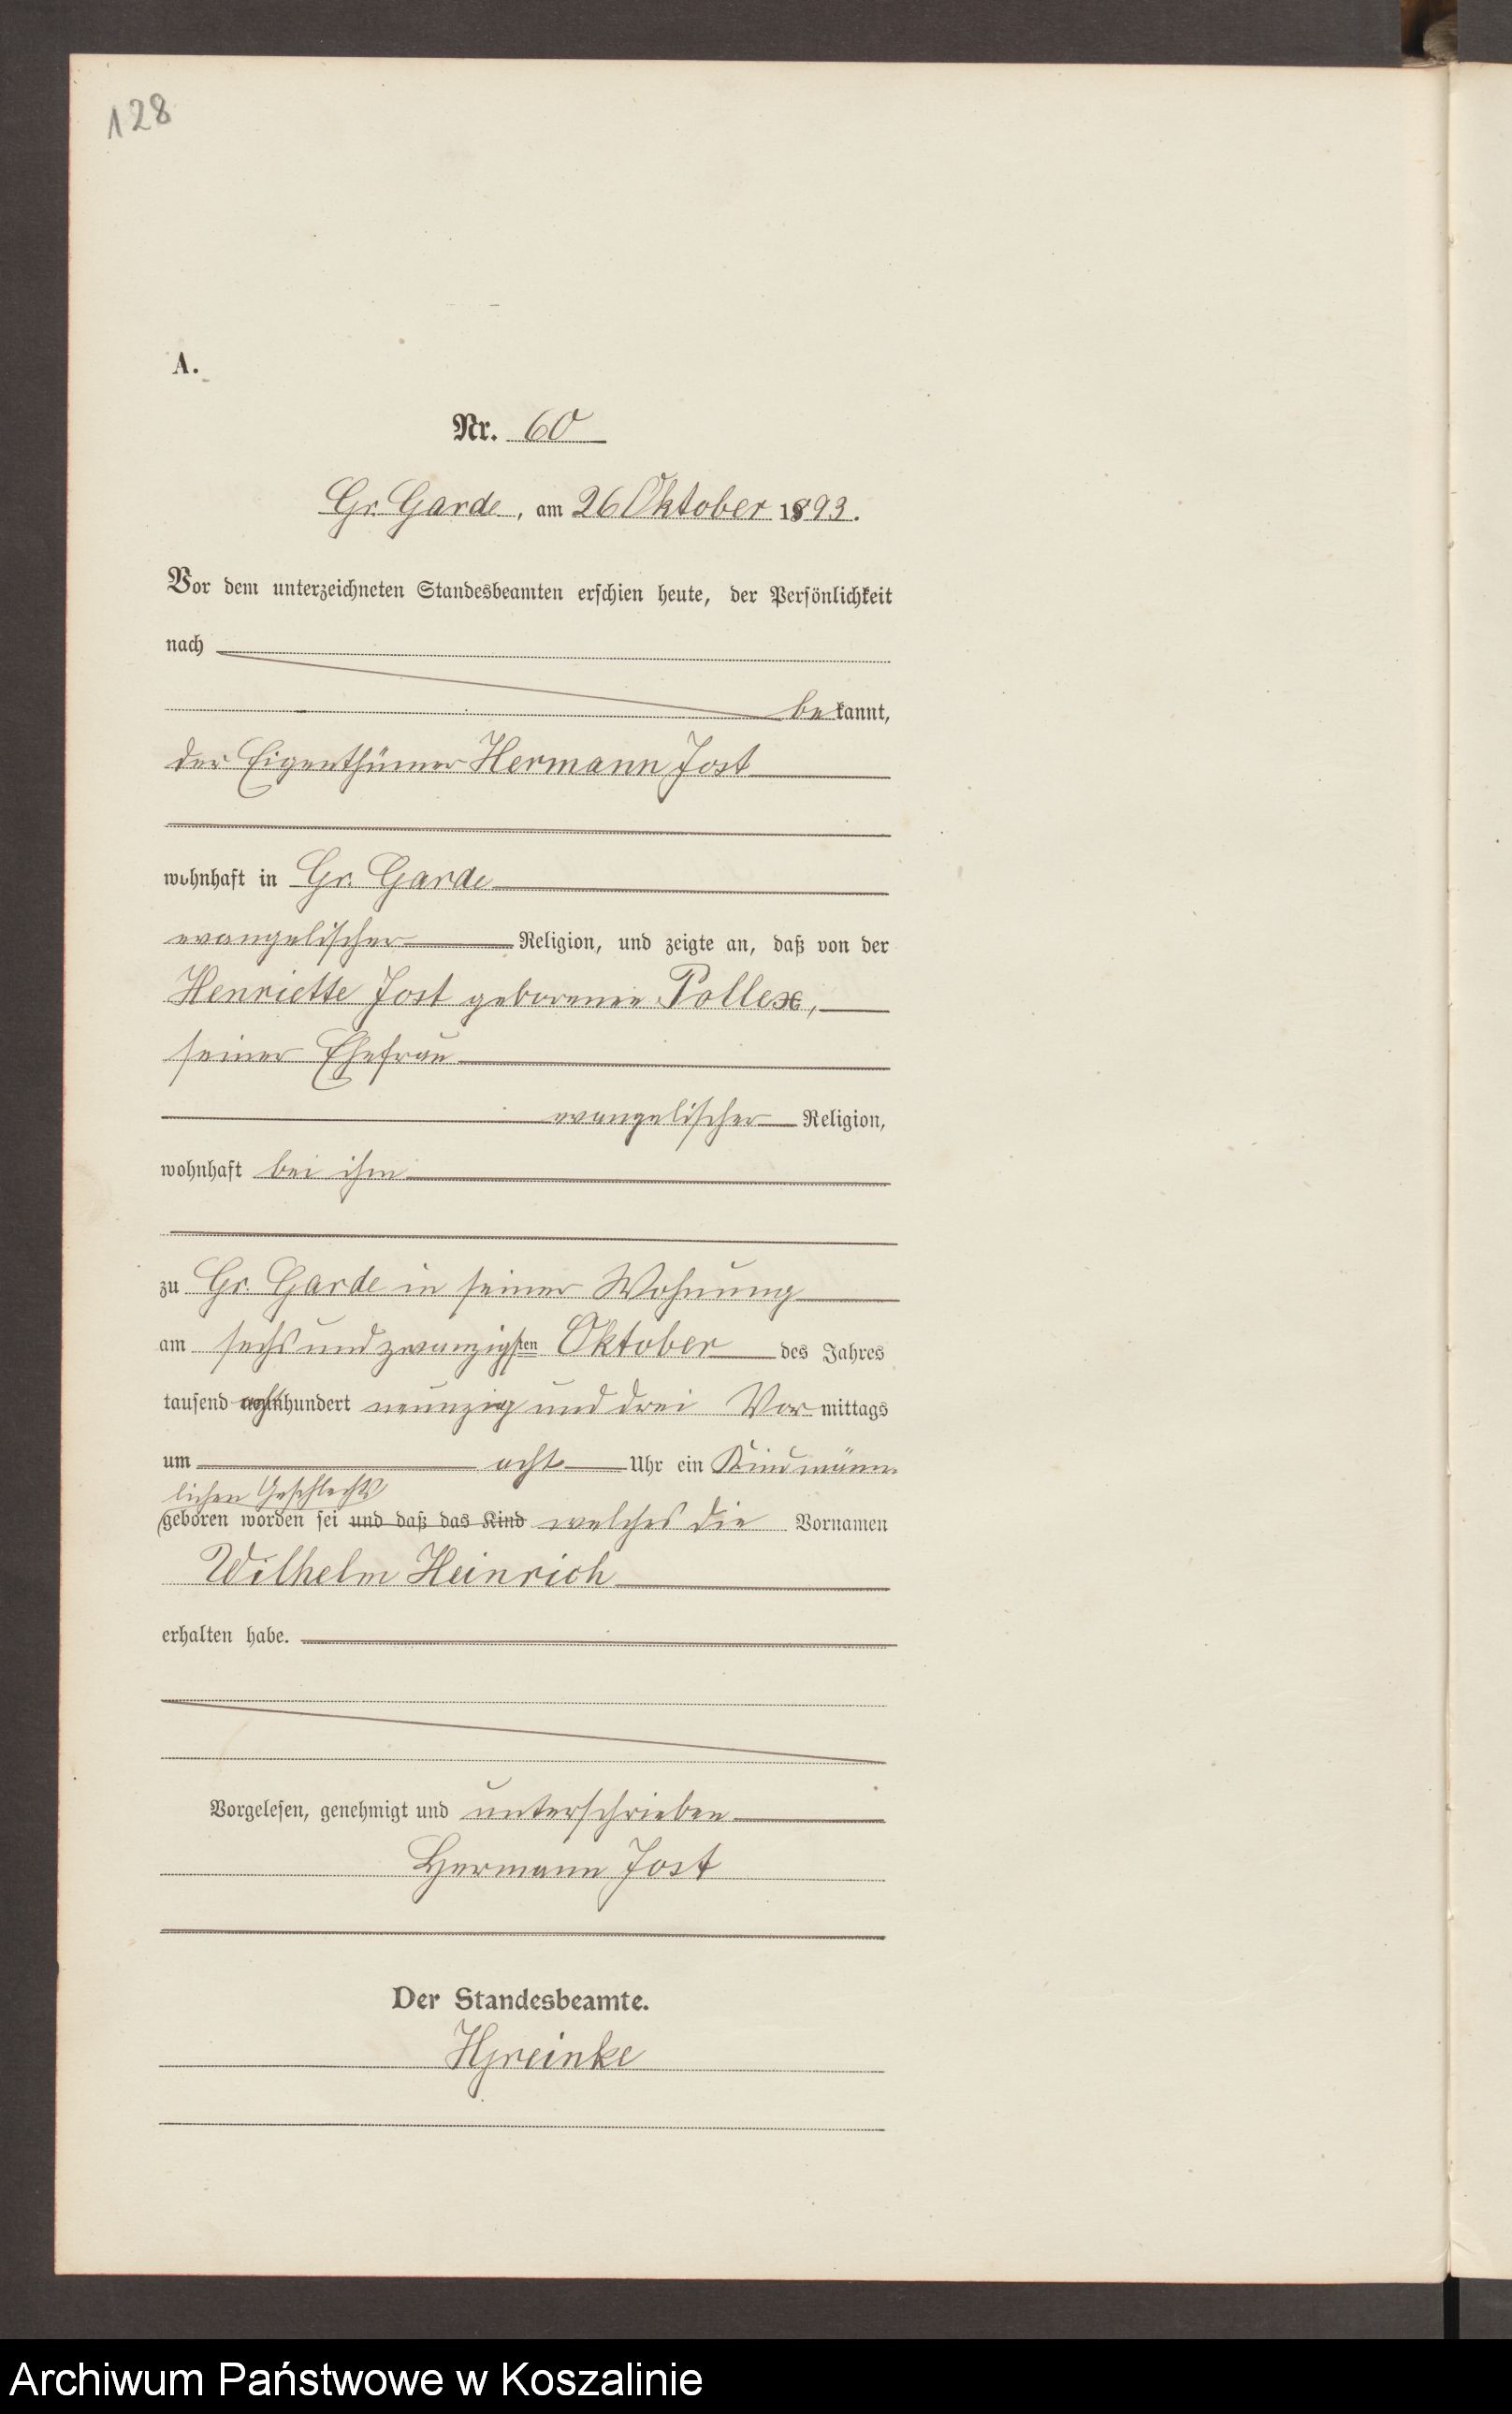 128
A.
Nr. 60
Gr. Garde, am 26 Oktober 1893.
Vor dem unterzeichneten Standesbeamten erschien heute, der Persönlichkeit
nach
bekannt,
der Eigenthümer Hermann Jost
wohnhaft in Gr. Garde
evangelischer Religion, und zeigte an, daß von der
Henriette Jost geborenen Pollex,
seiner Ehefrau
evangelischer Religion,
wohnhaft bei ihm
zu Gr. Garde in seiner Wohnung
am sechsundzwanzigsten Oktober des Jahres
tausend achthundert neunzig und drei Vormittags
um acht Uhr ein Kind männ-
lichen Geschlechts
geboren worden sei und daß das Kind welches die Vornamen
Wilhelm Heinrich
erhalten habe.
Vorgelesen, genehmigt und unterschrieben
Hermann Jost
Der Standesbeamte.
HGreinke
Archiwum Państwowe w Koszalinie